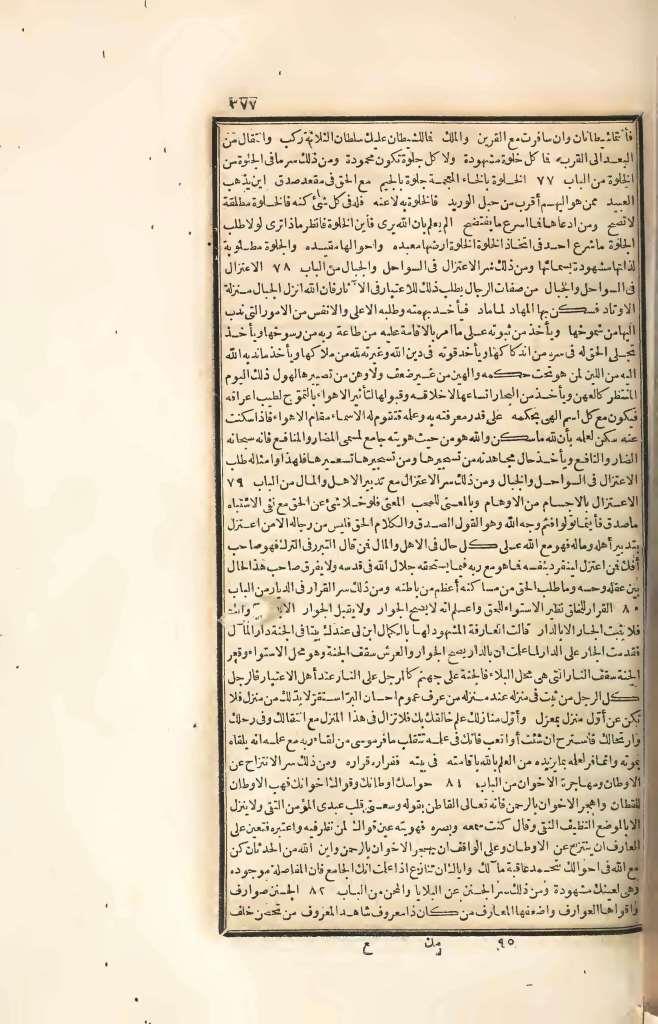 ٣٧٧
فأنتما شيطانان وان سافرت مع القرين والملك فالشيطان عليك سلطان الثلاثة ركب وانتقال من
البعد الى القربه فما كل خلوة مشهودة ولا كل جلوة تكون محمودة ومن ذلك سر ما فى الجلوة من
الخلوة من الباب ٧٧ الخلوة بالخاء المعجمة جلوة بالجيم مع الحق فى مقعد صدق اين يذهب
العبيد ممن هو اليهم أقرب من حبل الوريد فالخلوة به لا عنه فله فى كل شئ كنه فالخلوة مطلقة
لا تصح ومن ادعاها فما اسرع ما يفتضح الم يعلم بان الله يرى فأين الخلوة فانظر ماذا ترى لولا طلب
الجلوة ما شرع احد فى اتخاذ الخلوة الخلوة ارضها معبده واحوالها مقيده والجلوة مطلوبة
لذاتها مشهودة بسمائها ومن ذلك سر الاعتزال فى السواحل والجبال من الباب ٧٨ الاعتزال
فى السواحل والجبال من صفات الرجال يطلب ذلك للاعتبار فى الآثار فان الله انزل الجبال منزلة
الاوتاد فسكن بها المهاد لما ماد فيأخذ بهمته وطلبه الاعلى والانفس من الامور التى ندب
اليها من شموخها ويأخذ من ثبوته على ما امر بالاقامة عليه من طاعة ربه من رسوخها ويأخذ
تجلى الحق له فى سره من اندكاكها ويأخذ قوته فى دين الله وغيرته لله من ملاكها ويأخذ ما ندبه الله
اليه من اللين لمن هو تحت حكمه والهين من غير ضعف ولا وهن من تصييرها الهول ذلك اليوم
المنتظر كالعهن ويأخذ من البحار اتساعها لاخلاقه وقبولها لتأثير الاهواء بالتموج لطيب اعراقه
فيكون مع كل اسم الهى بحكمه على قدر معرفته به وعلمه فتقوم له الاسماء مقام الاهواء فاذا سكنت
عنه سكن لعلمه بأن لله ما سكن والله هو من حيث هويته جامع لمسمى المضار والمنافع فانه سبحانه
الضار والنافع ويأخذ حال مجاهدته من تسجيرها ومن تسجيرها تسعيرها فلهذا وامثاله طلب
الاعتزال فى السواحل والجبال ومن ذلك سر الاعتزال مع تدبير الاهل والمال من الباب ٧٩
الاعتزال بالاجسام من الاوهام وبالمعنى للمعنى فلو خلا شئ عن الحق مع نفى الاشتباه
ما صدق فأينما تولوا فثم وجه الله وهو القول الصدق والكلام الحق فليس من رجاله الا من اعتزل
بتدبير أهله وماله فهو مع الله على كل حال فى الاهل والمال فمن قال التبرر فى الترك فهو صاحب
أفك فمن اعتزل لينفرد بنفسه فما هو مع ربه فيما يستحقه جلال الله فى قدسه ولا يفرق صاحب هذا الحال
بين عقله وحسه وما طلب الحق من مساكنه أعظم من باطنه ومن ذلك سر القرار فى الديار من الباب
٨٠ القرار للخلق نظير الاستواء للحق واعلم انه لا يصح الجوار ولا يقبل الجوار الا
فلا يثبت الجار الا بالدار قالت العارفة المشهود لها بالكمال ابن لى عندك بيتا فى الجنة دار المآل
فقدمت الجار على الدار لما علمت ان بالدار يصح الجوار والعرش سقف الجنة وهو محل الاستواء وقعر
الجنة سقف النار التى هى محل البلاء فالجنة على جهنم كالمرجل على النار عند أهل الاعتبار فالرجل
كل الرجل من ثبت فى منزله عند منزله من عرف عموم احسان البر استقر لا بد لك من منزل فلا
تكن عن أول منزل بمعزل وأول منازلك علم خالقك بك فلا تزال فى هذا المنزل مع انتقالك وفى رحلك
وارتحالك فاسترح ان شئت أو اتعب فانك فى علمه تتقلب ما فر موسى من لقاء ربه مع علمه انه يلقاه
بموته وانما فر لعلمه بما يزيده من العلم بالله باقامته فى بيته ففراره قراره ومن ذلك سر الانتزاح عن
الاوطان ومهاجرة الاخوان من الباب ٨١ حواسك اوطانك وقواك اخوانك فهب الاوطان
للقطان واهجر الاخوان بالرحمن فانه تعالى القاطن بقوله وسعنى قلب عبدى المؤمن التقى ولا ينزل
الا بالموضع النظيف النقى وقال كنت سمعه وبصره فهويته عين قواك لمن نظر فيه واعتبره فتعين على
العارف ان ينتزح عن الاوطان وعلى الواقف ان يهجر الاخوان بالرحمن واين الله من الحدثان كن
مع الله فى احوالك تحمد عاقبة مآلك واياك ان تنازع اذا علمت انك الجامع فان المفاصلة موجوده
وهى لعينك مشهودة ومن ذلك سر الجنن عن البلايا والمحن من الباب ٨٢ الجنن صوارف
واقواها العوارف واضعفها المعارف من كان ذا معروف شاهد المعروف من تحصن خلف
٩٥
مك
ع